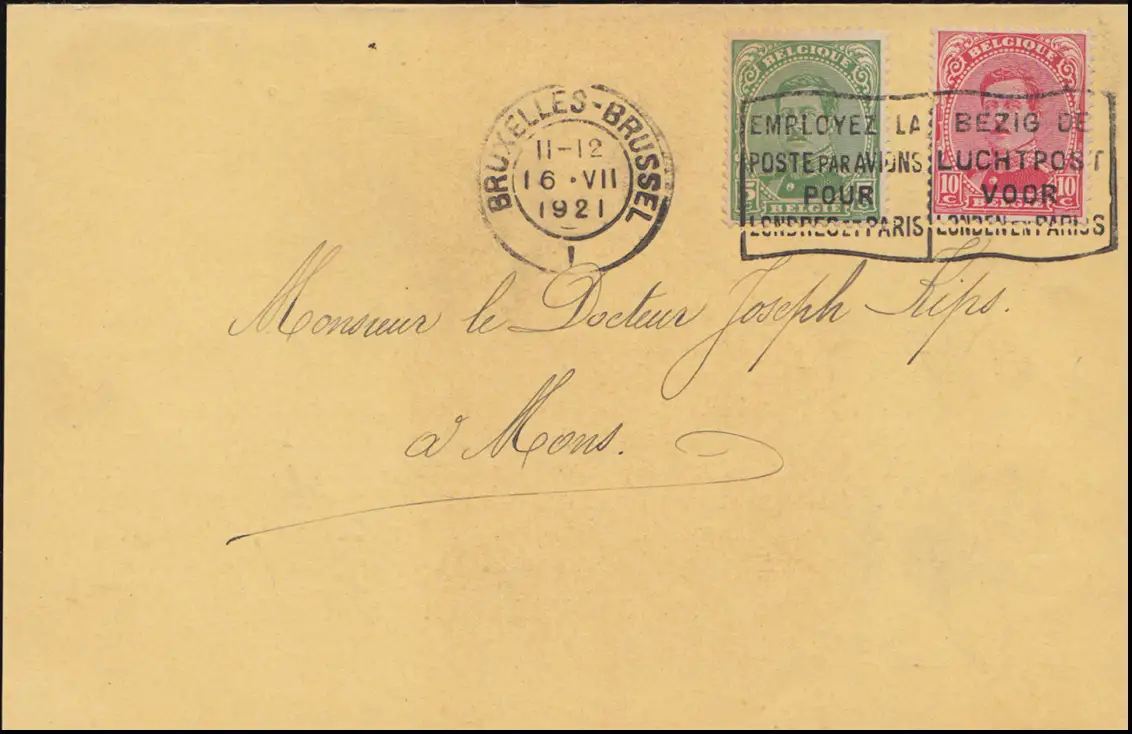 BRUXELLES-BRUSSEL
11-12
16 · VII
1921
1
BELGIQUE
5
BELGIË
BELGIQUE
10 c
10 c
BELGIË
EMPLOYEZ LA
POSTE PAR AVIONS
POUR
LONDRES ET PARIS
BEZIG DE
LUCHTPOST
VOOR
LONDEN EN PARIJS
Monsieur le Docteur Joseph Kips.
à Mons.